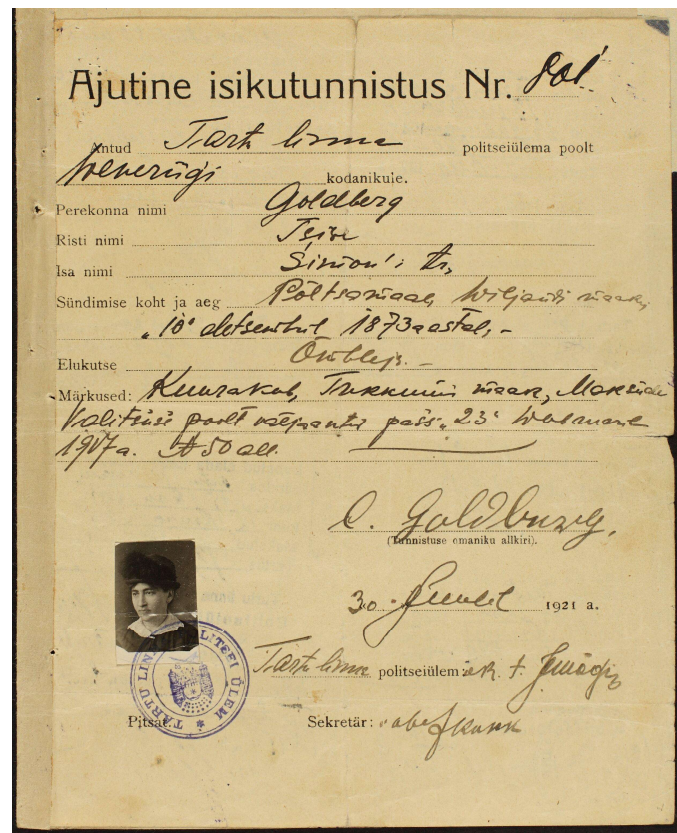 Ajutine isikutunnistus Nr. 801
Antud Tartu linna politseiülema poolt
kodanikule.
Perekonna nimi Goldberg
Risti nimi
Isa nimi Simon'i tr,
Sündimise koht ja aeg Põltsamaal, Wiljandi maak,
"10" detsembril 1873 aastal, -
Elukutse Õmbleja. -
Märkused: Kuuramaa, Tukkumi maak, Maksude
Valitsuse poolt väljaantud pass "23"
1907 a. № 50 all.
C. Goldberg,
(Tunnistuse omaniku allkiri).
30. 1921 a.
Tartu linna politseiülem:
Pitsat. Sekretär:
TARTU LINNA POLITSEI ÜLEM